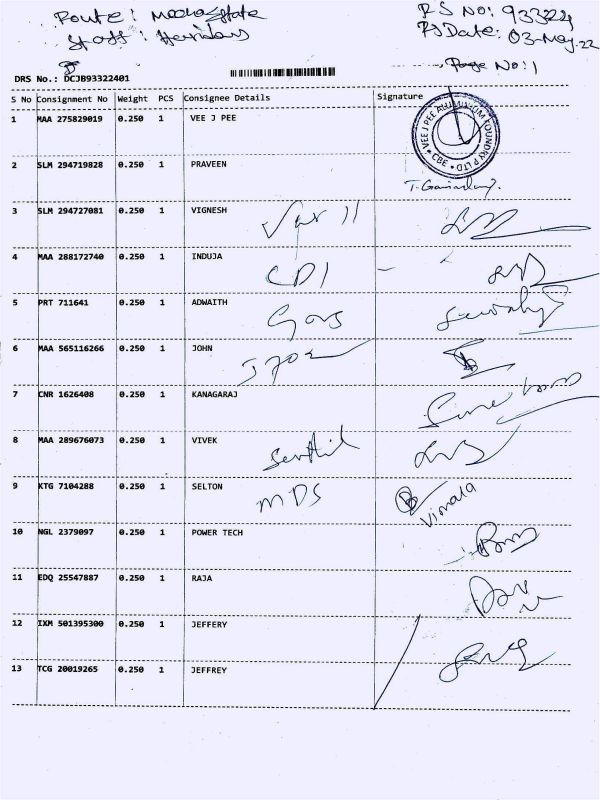 Route:
RS No: 93322
Staff: Haridas
RS Date: 03-May-22
Page No: 1
DRS No.: DCJB93322401
S No Consignment No Weight PCS Consignee Details Signature
1 MAA 275829019 0.250 1 VEE J PEE
VEE J PEE ALUMINIUM FOUNDRY P LTD * CBE *
2 SLM 294719828 0.250 1 PRAVEEN
3 SLM 294727081 0.250 1 VIGNESH
4 MAA 288172740 0.250 1 INDUJA
CDI
5 PRT 711641 0.250 1 ADWAITH
6 MAA 565116266 0.250 1 JOHN
7 CNR 1626408 0.250 1 KANAGARAJ
8 MAA 289676073 0.250 1 VIVEK
Senthil
9 KTG 7104288 0.250 1 SELTON
MDS Vimala
10 NGL 2379097 0.250 1 POWER TECH
11 EDQ 25547887 0.250 1 RAJA
12 IXM 501395300 0.250 1 JEFFERY
13 TCG 20019265 0.250 1 JEFFREY